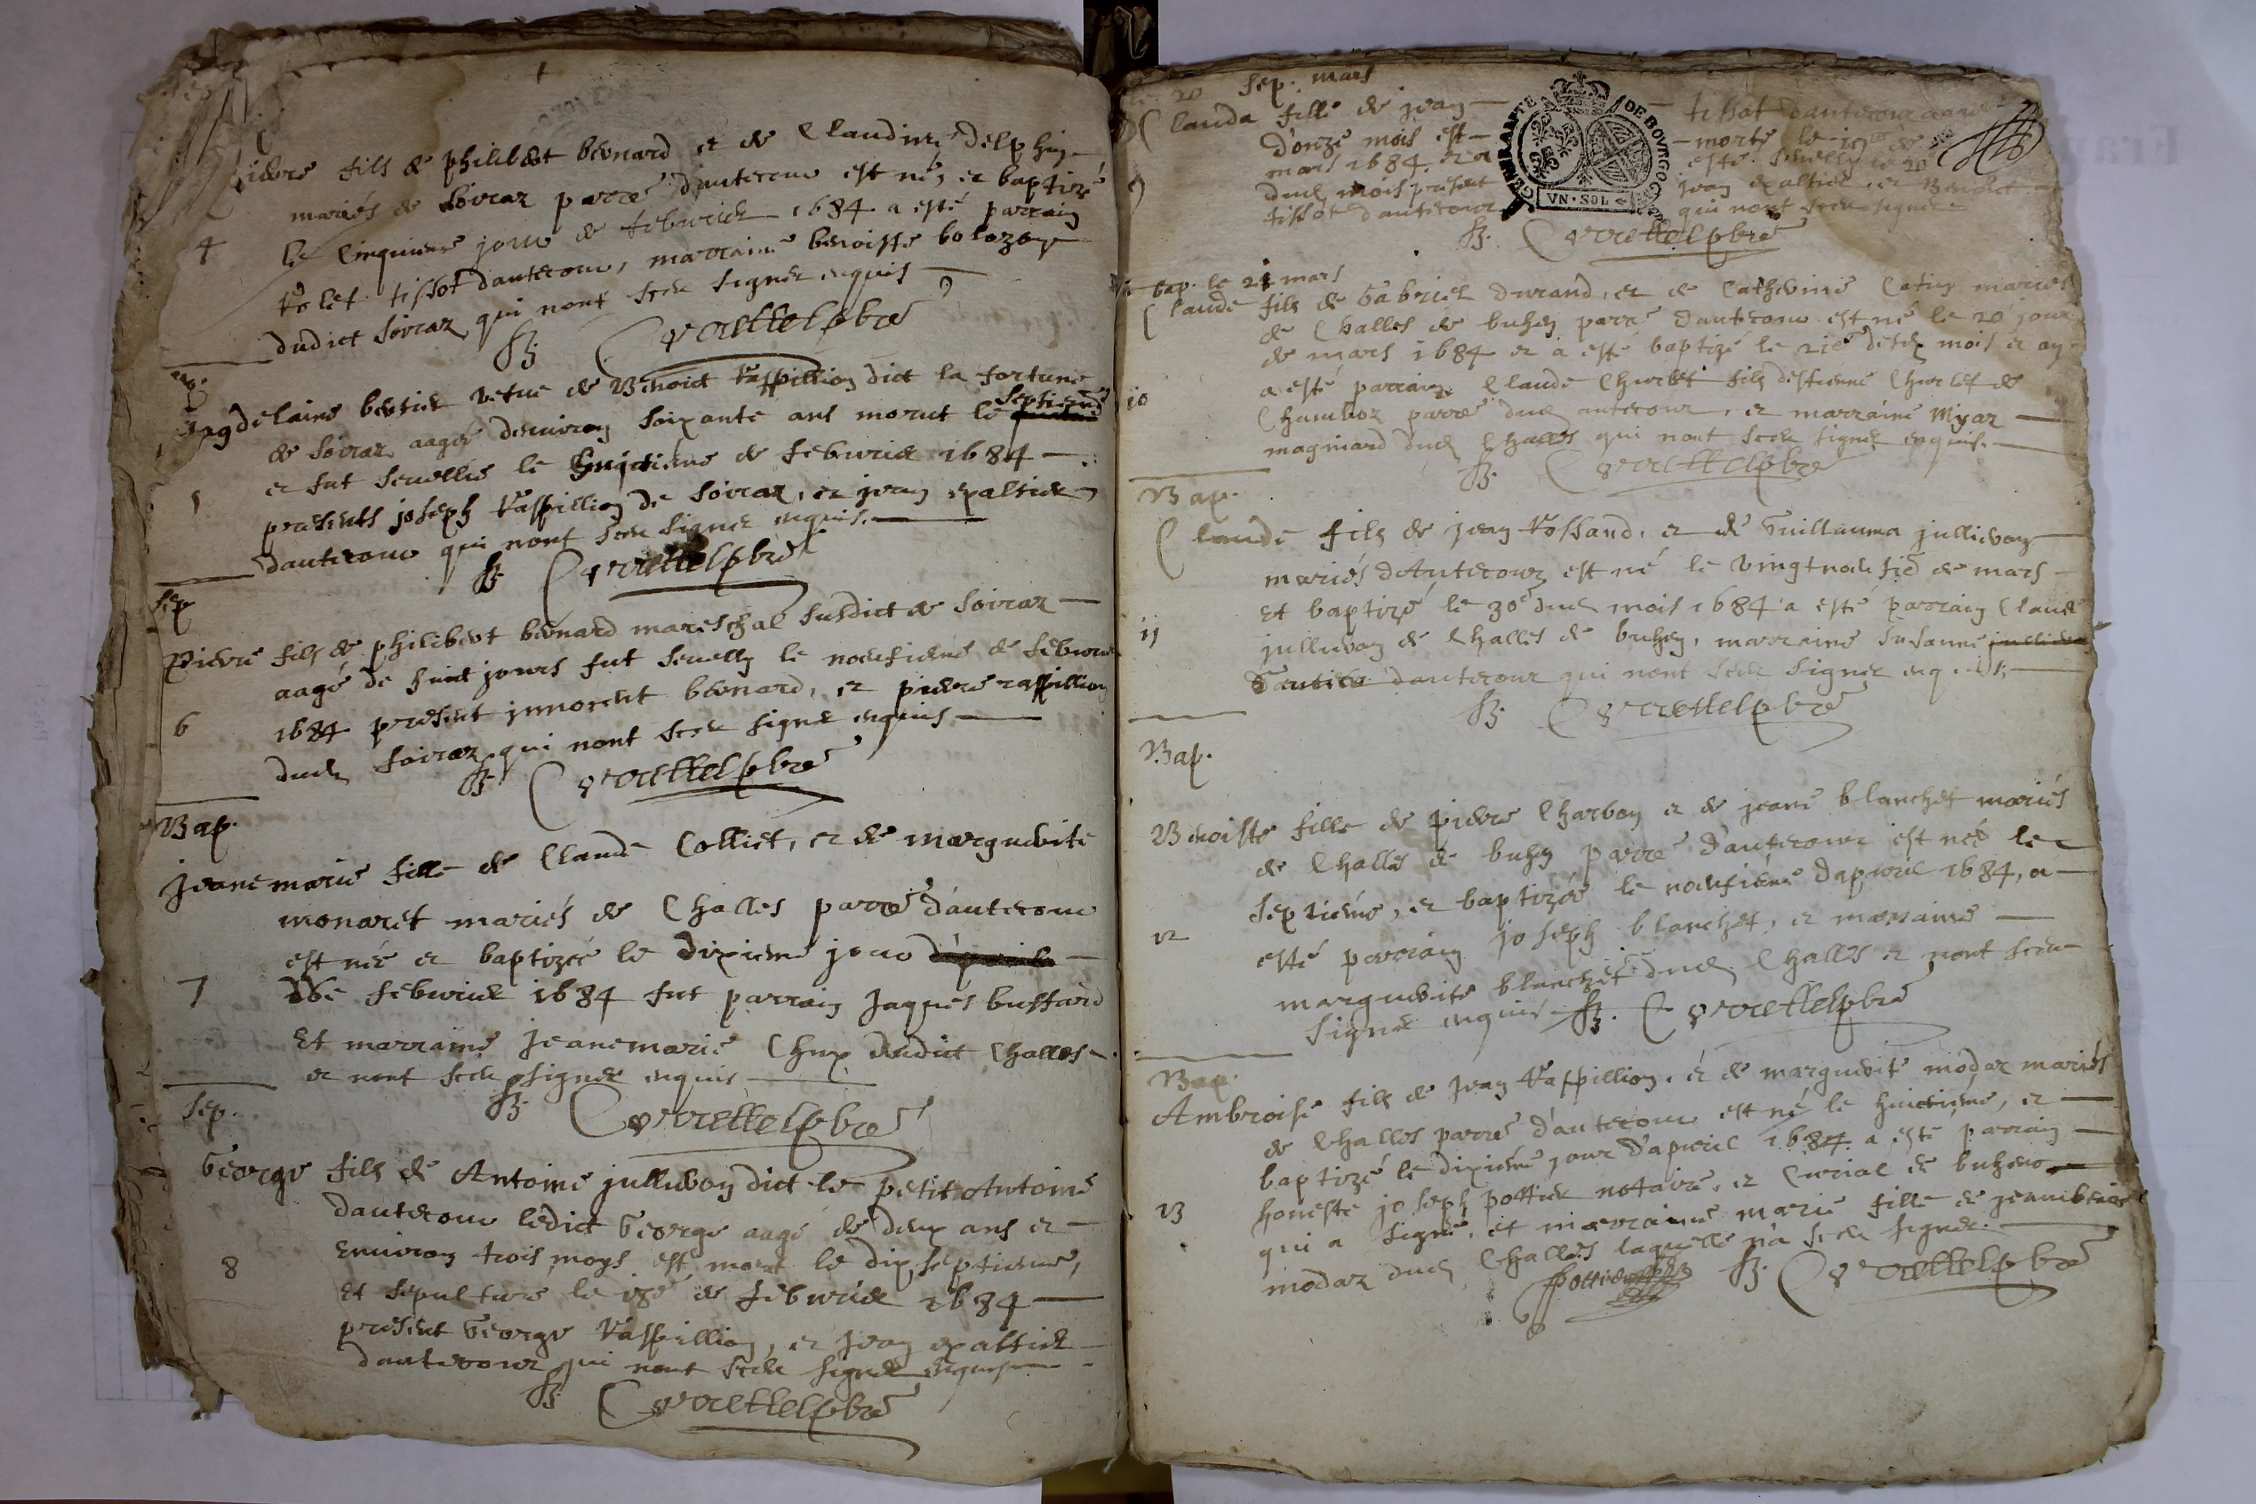 fils de philibert bernard et de Claudine delphin
mariés de soiraz parre d'antecour est né, et baptizé
4 le Cinquieme jour de febvrier 1684 a esté parrain
tolet tissot dantecour, marraine benoiste bolozon
dudict soiraz qui nont sceu signer enquis
Sep.
Magdelaine bertier vefue de Benoict Raspillion dict la fortune
septieme
de soiraz aagée denviron soixante ans morut le
et fut sevellie le huictieme de febvrier 1684
5 presents joseph Raspillion de soiraz, et jean
dantecour qui nont sceu signer enquis.
Sep
Pierre fils de philibert bernard mareschal susdict de soiraz
aagé de huict jours fut sevelly le neufieme de febvrier
6 1684 present innocent bernard, et pierre raspillion
dud soiraz qui nont sceu signer enquis
Bap.
Jeanemarie fille de Claude Colliet, et de marguerite
monaret mariés de Challes parre d'antecour
est née et baptizée le dixieme jour
7 de febvrier 1684 fut parrain Jaques buffard
Et marraine Jeanemarie Chux dudict Challes
et nont sceu signer enquis
Sep.
George fils de Antoine jullieron dict le petit Antoine
dantecour ledict George aagé de deux ans et
environ trois moys est mort le dix septieme,
8 Et sepulture le 18e de febvrier 1684
present George Raspillion, et Jean
dantecour qui nont sceu signer enquis
20 Sep. mars
Clauda fille de jean tissot dantecour
d'onze mois est morte le 19
mars 1684 et a esté sevellie le 20
dud mois present jean et Benoict
tissot dantecour qui nont sceu signer
GENERALITE DE BOVRGOG
VN·SOL
bap. le 21 mars
Claude fils de Gabriel durand, et de Catherine Catin mariés
de Challes de buhen parre dantecour est né le 20 jour
de mars 1684 et a esté baptizé le 21e desd mois et an
10 a esté parrain Claude Churlet fils destienne Churlet de
Chamboz parre dud antecour, et marraine Myaz
magniard dud Challes qui nont sceu signer enquis.
Bap.
Claude fils de jean Rossand, et de Guillauma jullieron
mariés dAntecour est né le vingtneufie de mars
Et baptizé le 30e dud mois 1684 a esté parrain Claude
11 jullieron de Challes de buhen, marraine Susanne
dantecour qui nont sceu signer enquis
Bap.
Benoiste fille de pierre Charbon et de jeane blanchet mariés
de Challes de buhen parre d'antecour est née le
septieme, et baptizée le neufieme dapvril 1684, a
12 esté parrain joseph blanchet, et marraine
marguerite blanchet dud Challes et nont sceu
signer enquis
Bap.
Ambroise fils de Jean Raspillion, et de marguerite modaz mariés
de Challes parre d'antecour est né le huictieme, et
baptizé le dixieme jour d'apvril 1684 a esté parrain
13 honeste joseph pottier notaire, et Curial de buhenc
qui a signé, et marraine marie fille de
modaz dud Challes laquelle n'a sceu signer.